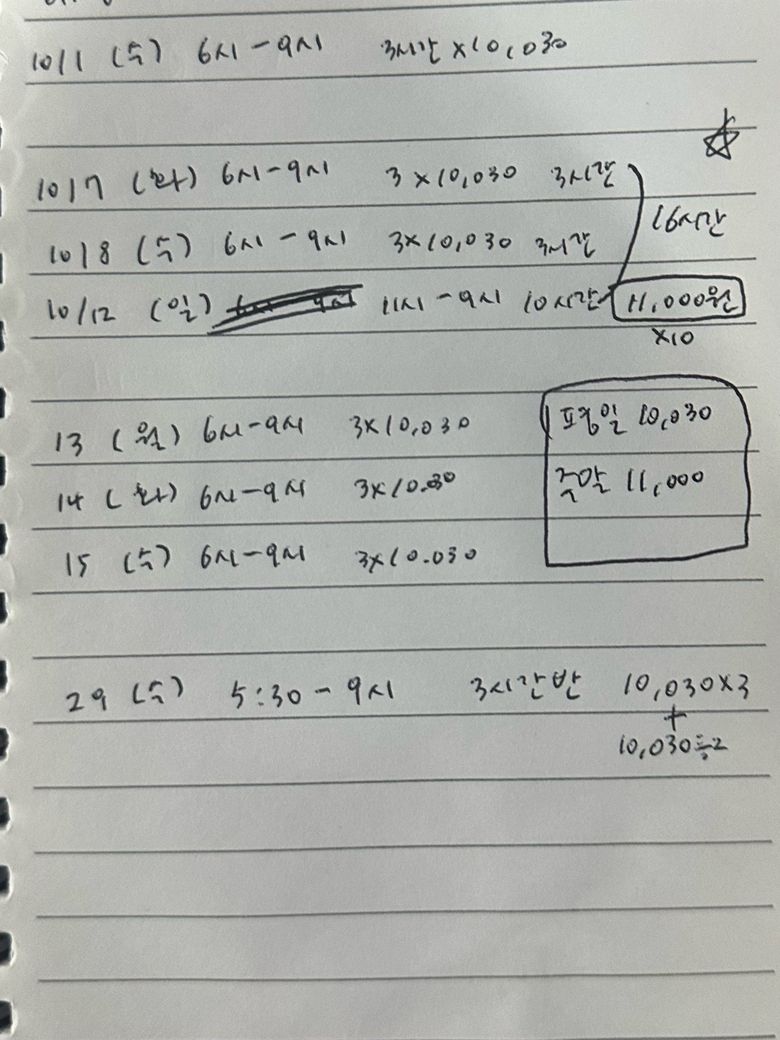 10/1 (수) 6시-9시 3시간 × 10,030
10/7 (화) 6시-9시 3×10,030 3시간
16시간
10/8 (수) 6시-9시 3×10,030 3시간
10/12 (일) 11시-9시 10시간 11,000원
×10
13 (월) 6시-9시 3×10,030
평일 10,030
14 (화) 6시-9시 3×10.030
주말 11,000
15 (수) 6시-9시 3×10.030
29 (수) 5:30-9시 3시간반 10,030×3
+
10,030÷2